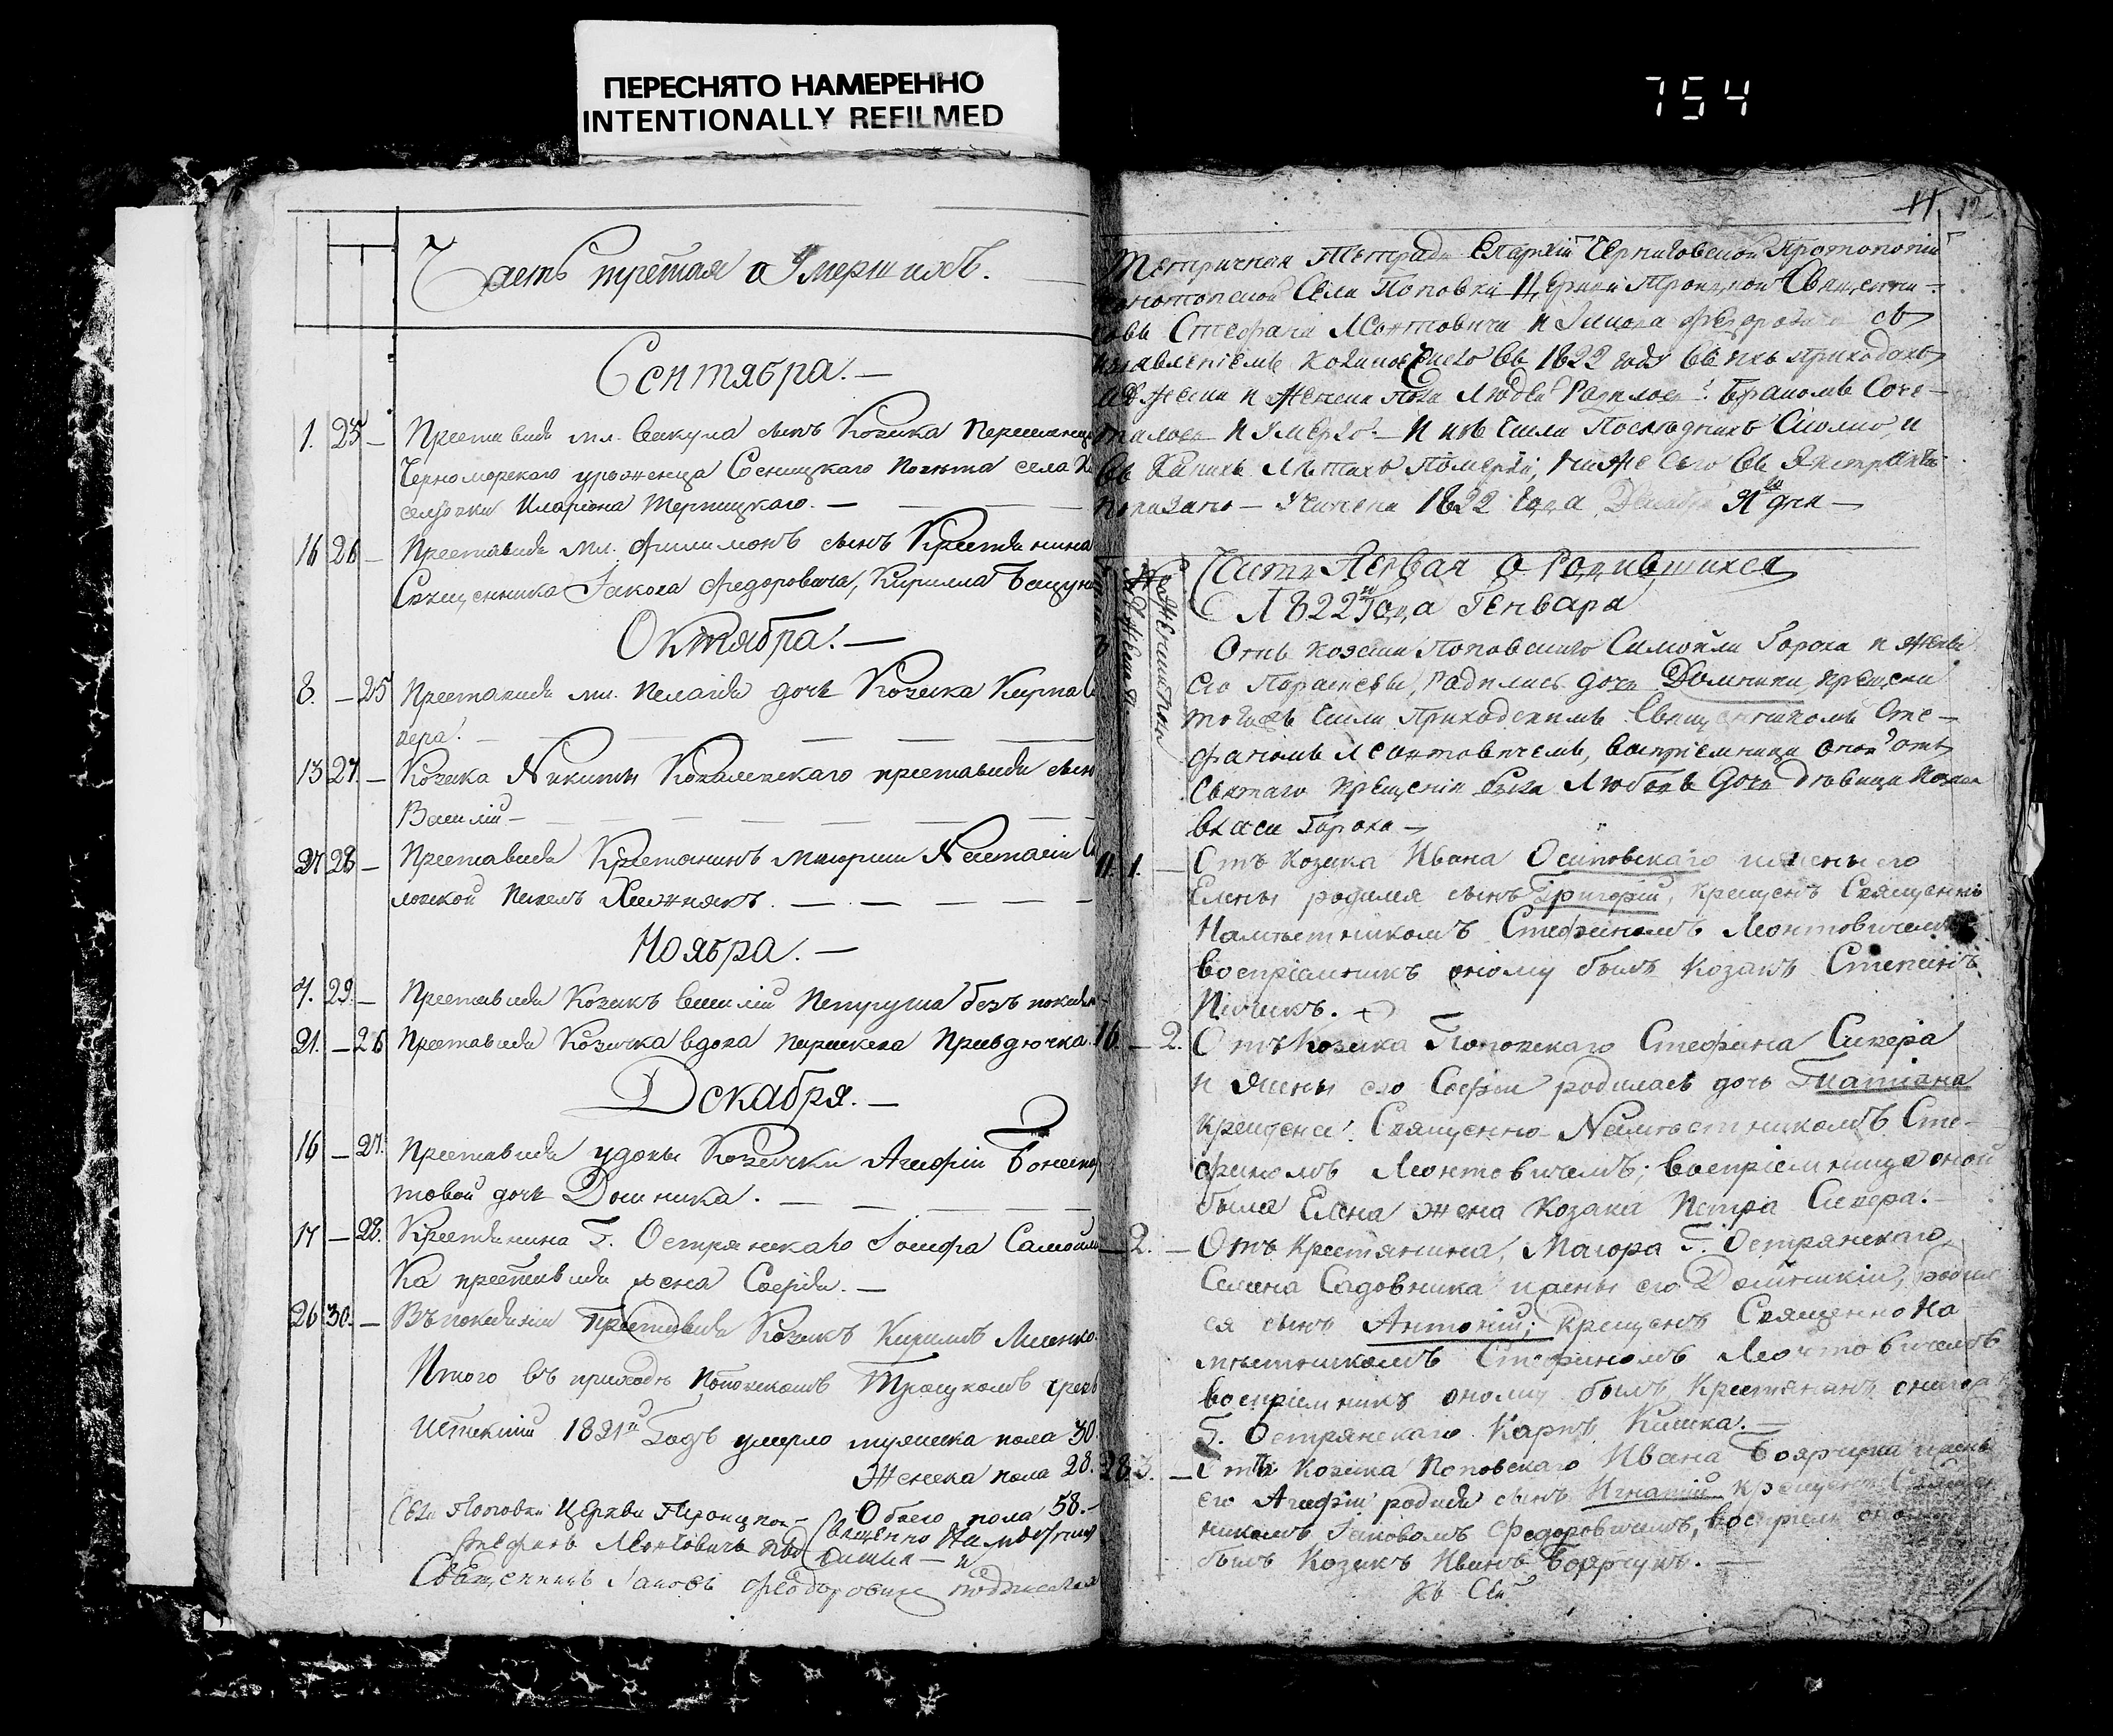 ПЕРЕСНЯТО НАМЕРЕННО
INTENTIONALLY REFILMED
754
Часть третая о Умершихъ.
Сентября. —
1. 25 — Преставися мл. Вакула сынъ Козака
Черноморскаго уроженца Сосницкаго Повѣта села
Иларіона Терницкаго. —
16 26 — Преставися мл. Филимонъ сынъ Крестянина
Священника Іакова Федоровича, Кирилла
Октября. —
8. — 25 Преставися мл. Пелагія дочь Козака Карпа
кера. —
13 27. — Козака Никиты Коваленскаго преставися сынъ
Василій —
27 28 — Преставися Крестянинъ Анастасіи
Павелъ
Ноября. —
7. 29. — Преставися Козакъ Василій Петруша безъ
21. — 26 Преставися Козачка вдова Параскева Правдючка.
Декабря. —
16 — 27. Преставися удовы Козачки Агафіи
товой дочь Домника. —
17 — 28. Крестянина Г. Острянскаго Іосифа
ка преставися жена Софія. —
26 30. — Въ покаяніи Преставися Козакъ Кирилъ
Итого въ приходѣ Поповскомъ Троицкомъ чрезъ
Истекшій 1821й Годъ умерло мужеска пола 30.
Женска пола 28.
Обоего пола 58. —
Села Поповки Церкви Троицкой Священно Намѣстникъ
Стефанъ Леонтовичъ
Священникъ Іаковъ Федоровичъ подписался
11 12
Метричная Тетрадь Епархіи Черниговской Протопопіи
Конотопской Села Поповки Церкви Троицкой Священни-
ковъ Стефана Леонтовича и Іакова Федоровича съ
въ 1822 году въ ихъ Приходахъ
и Женска Пола Людей Родилось. Бракомъ Соче-
талось и Умерло. — И изъ сихъ Последнихъ Сколко, и
въ Какихъ Лѣтахъ Померли, ниже сего въ Екстрактѣ
показано — Учинена 1822 Года Декабря 31го дня —
Часть Первая о Родившихся
1822го Года Генваря
Отъ козака Поповского Самойла Гороха и жены
его Параскевы, Родилась дочь Домника, крещена
Приходскимъ Священникомъ Сте-
фаномъ Леонтовичемъ, воспріемница оной отъ
святаго Крещенія Любовь дочь девица
Власа Гороха —
11. 1. — Отъ Козака Ивана Осиповскаго и жены его
Елены родился сынъ Григорій, крещенъ Священно
Намѣстникомъ Стефаномъ Леонтовичемъ
воспріемникъ оному былъ Козакъ Степанъ
16. — 2. Отъ Козака Поповскаго Стефана Сикера
и жены его Софіи родилась дочь Татіана
крещена Священно-Намѣстникомъ Сте-
фаномъ Леонтовичемъ; воспріемница оной
была Елена жена Козака Петра Сикера. —
— 2. — Отъ Крестянина, Маіора Г. Острянскаго
Семена Садовника и жены его Домникіи, родил
ся сынъ Антоній; Крещенъ Священно На-
мѣстникомъ Стефаномъ Леонтовичемъ
воспріемникъ оному былъ, Крестянинъ
Г. Острянскаго Карпъ Кишка. —
28 3. — Отъ Козака Поповскаго Ивана Боярчука и жены
его Агафіи родися сынъ Игнатій крещенъ Священ
никомъ Іаковомъ Федоровичемъ, воспріем
былъ Козакъ Иванъ Боярчукъ. —